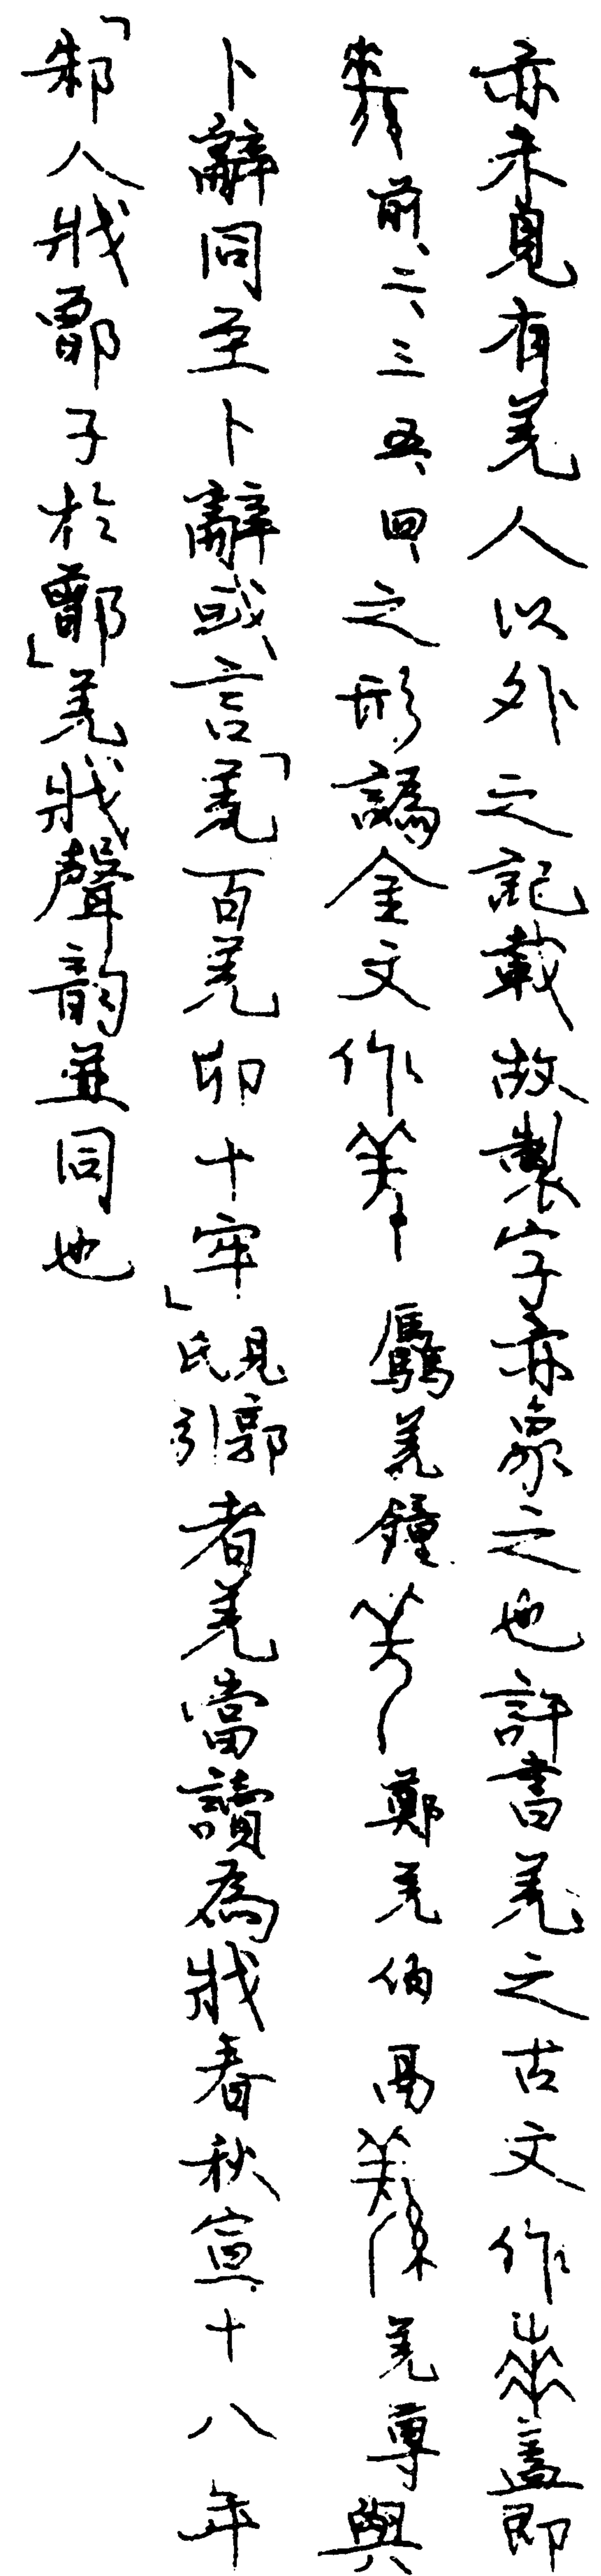 亦未見有羌人以外之記載故製字亦象之也許書羌之古文作蓋即
前、二、三五、四、之形譌金文作 驫羌鐘 鄭羌伯鬲 羌尊與
卜辭同至卜辭或言「羌百羌卯十牢」見郭氏引者羌當讀為戕春秋宣十八年
「邾人戕鄫子於鄫」羌戕聲韵並同也